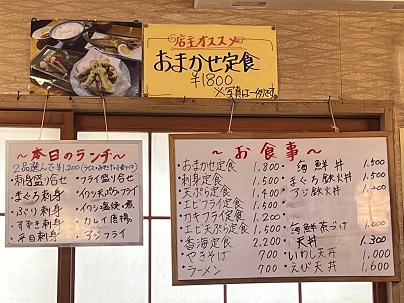 店主オススメ
おまかせ定食
¥1800
※写真は一例です
～本日のランチ～
2品選んで¥1,200
・刺身盛り合せ
・まぐろ刺身
・ぶり刺身
・すずき刺身
・平目刺身
・フライ盛り合せ
・イワシ天ぷら、フライ
・イワシ塩焼・煮
・カレイ唐揚
・アジフライ
～お食事～
・おまかせ定食 1,800
・刺身定食 1,500
・天ぷら定食 1,400
・エビフライ定食
・カキフライ定食
・エビ天ぷら定食
・香海定食 2,200
・やきそば 700
・ラーメン 700
・海鮮丼 1,500
・まぐろ鉄火丼 1,500
・アジ鉄火丼
・海鮮茶づけ
・天丼 1,300
・いわし天丼 1,000
・えび天丼 1,600